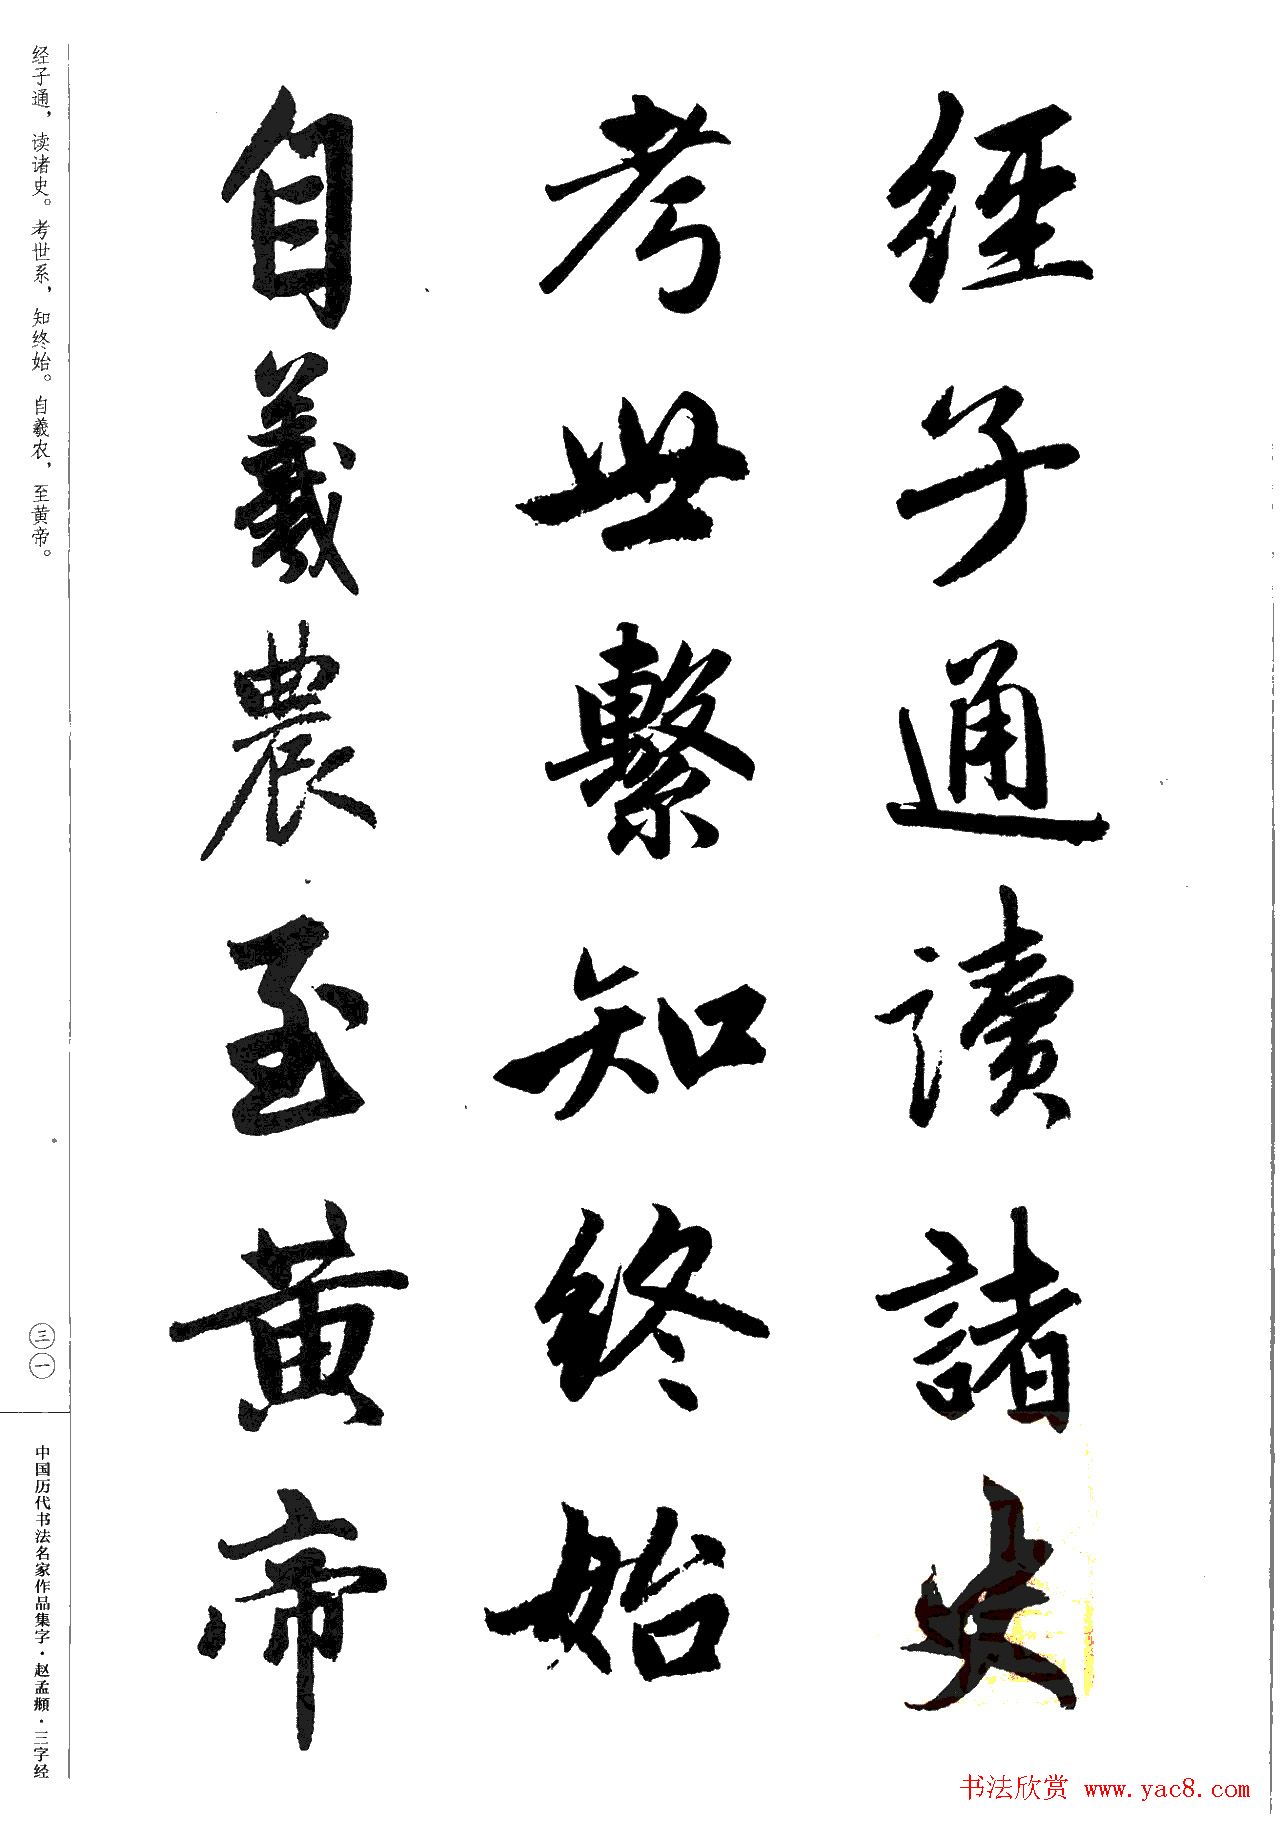 經子通讀諸史
考世繫知終始
自羲農至黃帝
经子通，读诸史。考世系，知终始。自羲农，至黄帝。
三一
中国历代书法名家作品集字·赵孟頫·三字经
书法欣赏 www.yac8.com